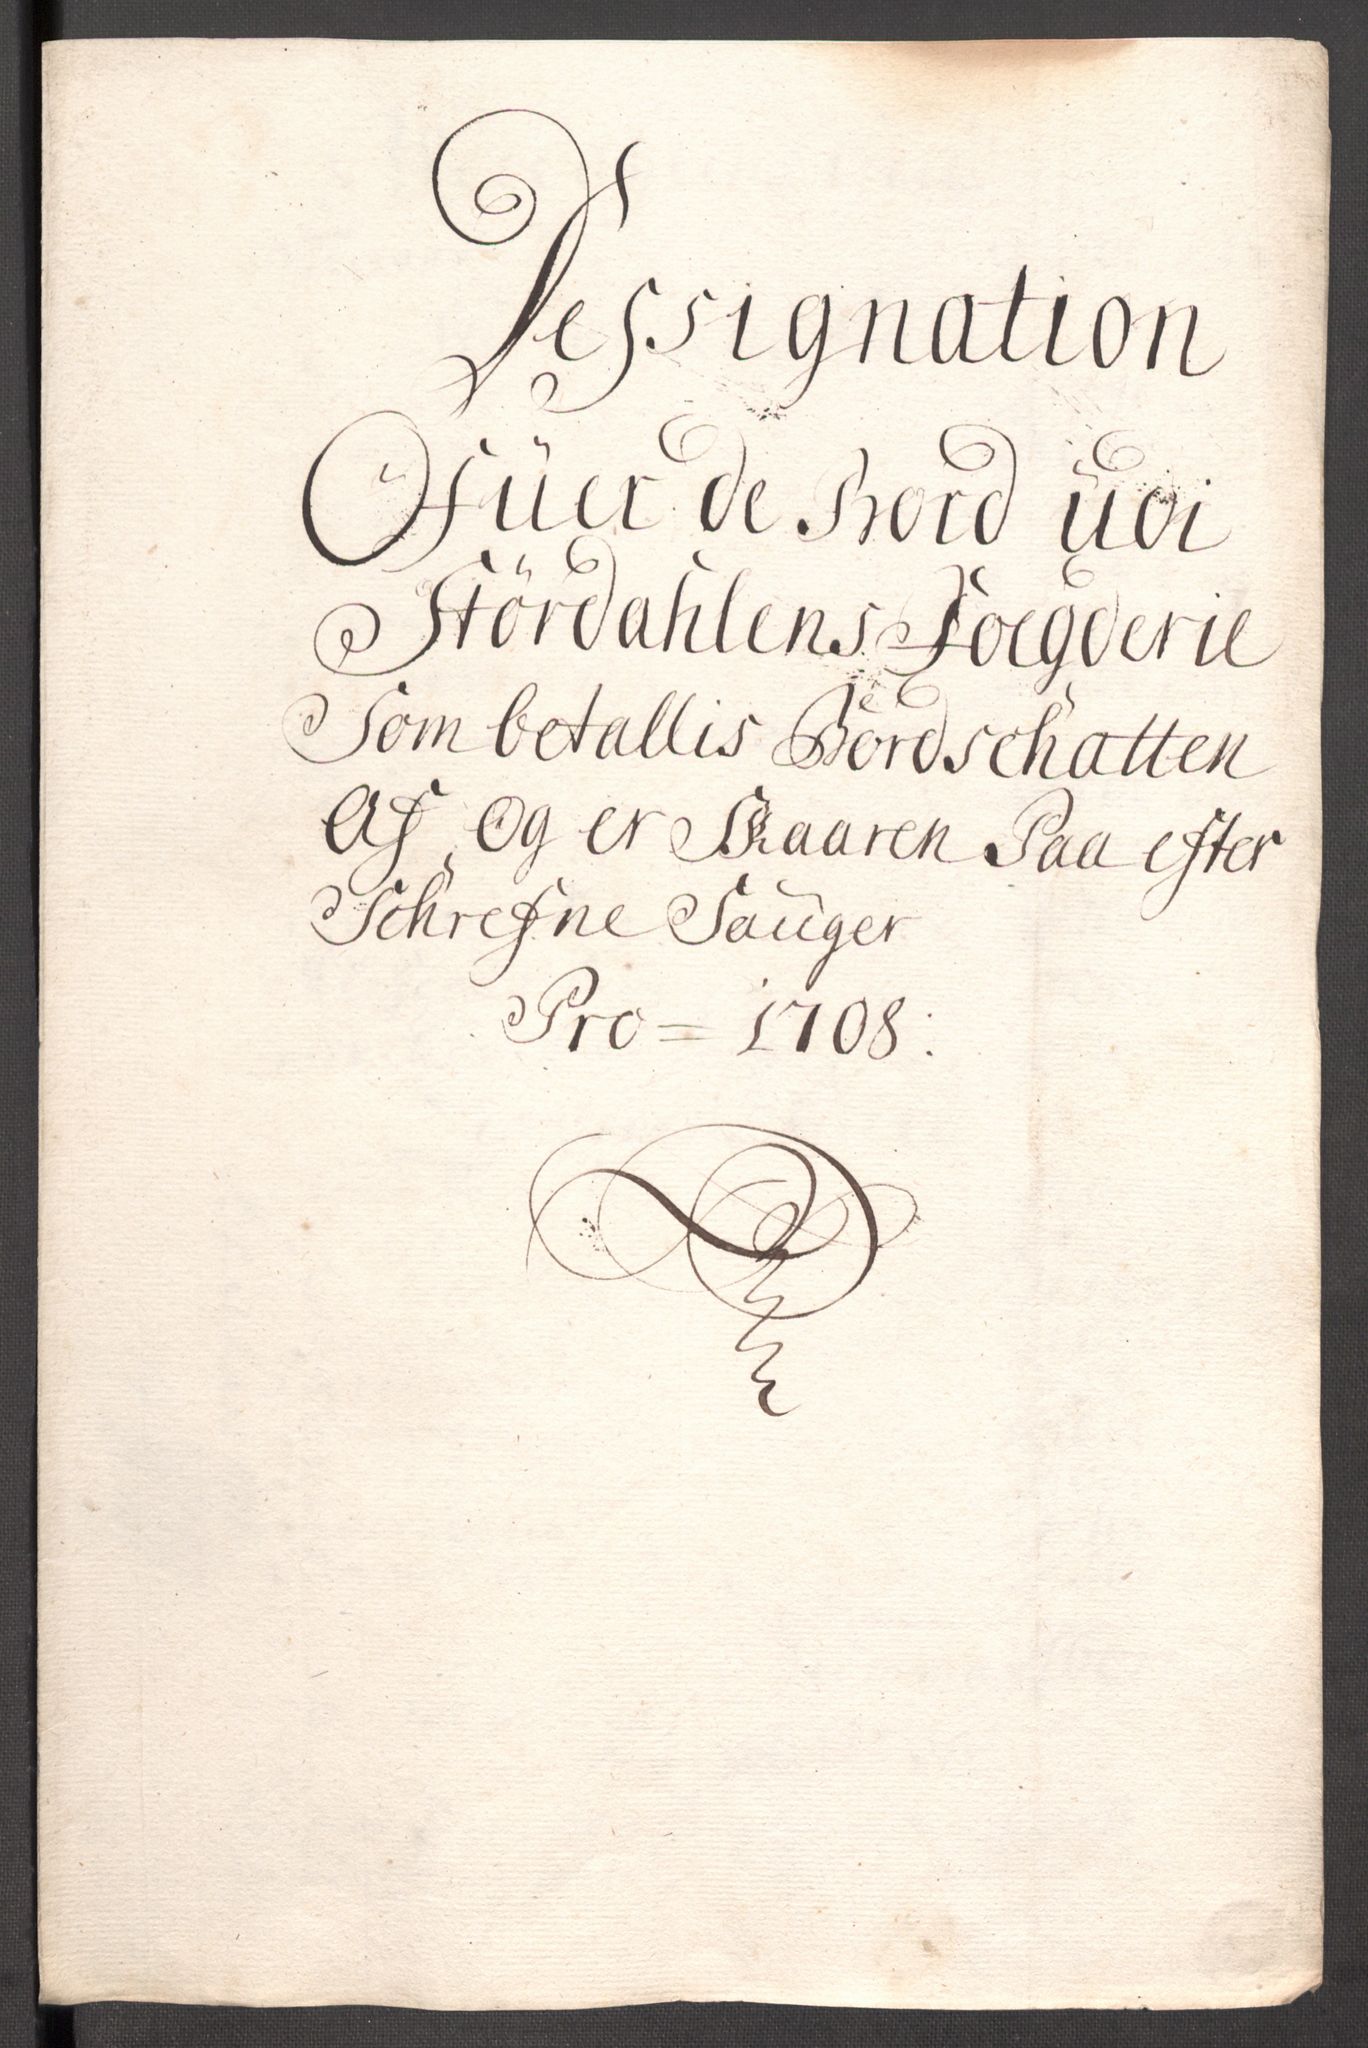 Dessignation
Ofüer de Bord üdi
Stördahlens Foegderie
Som betallis Bordschatten
Af, Og er Skaaren Paa efter
Schrefne Sauger
Pro = 1708: